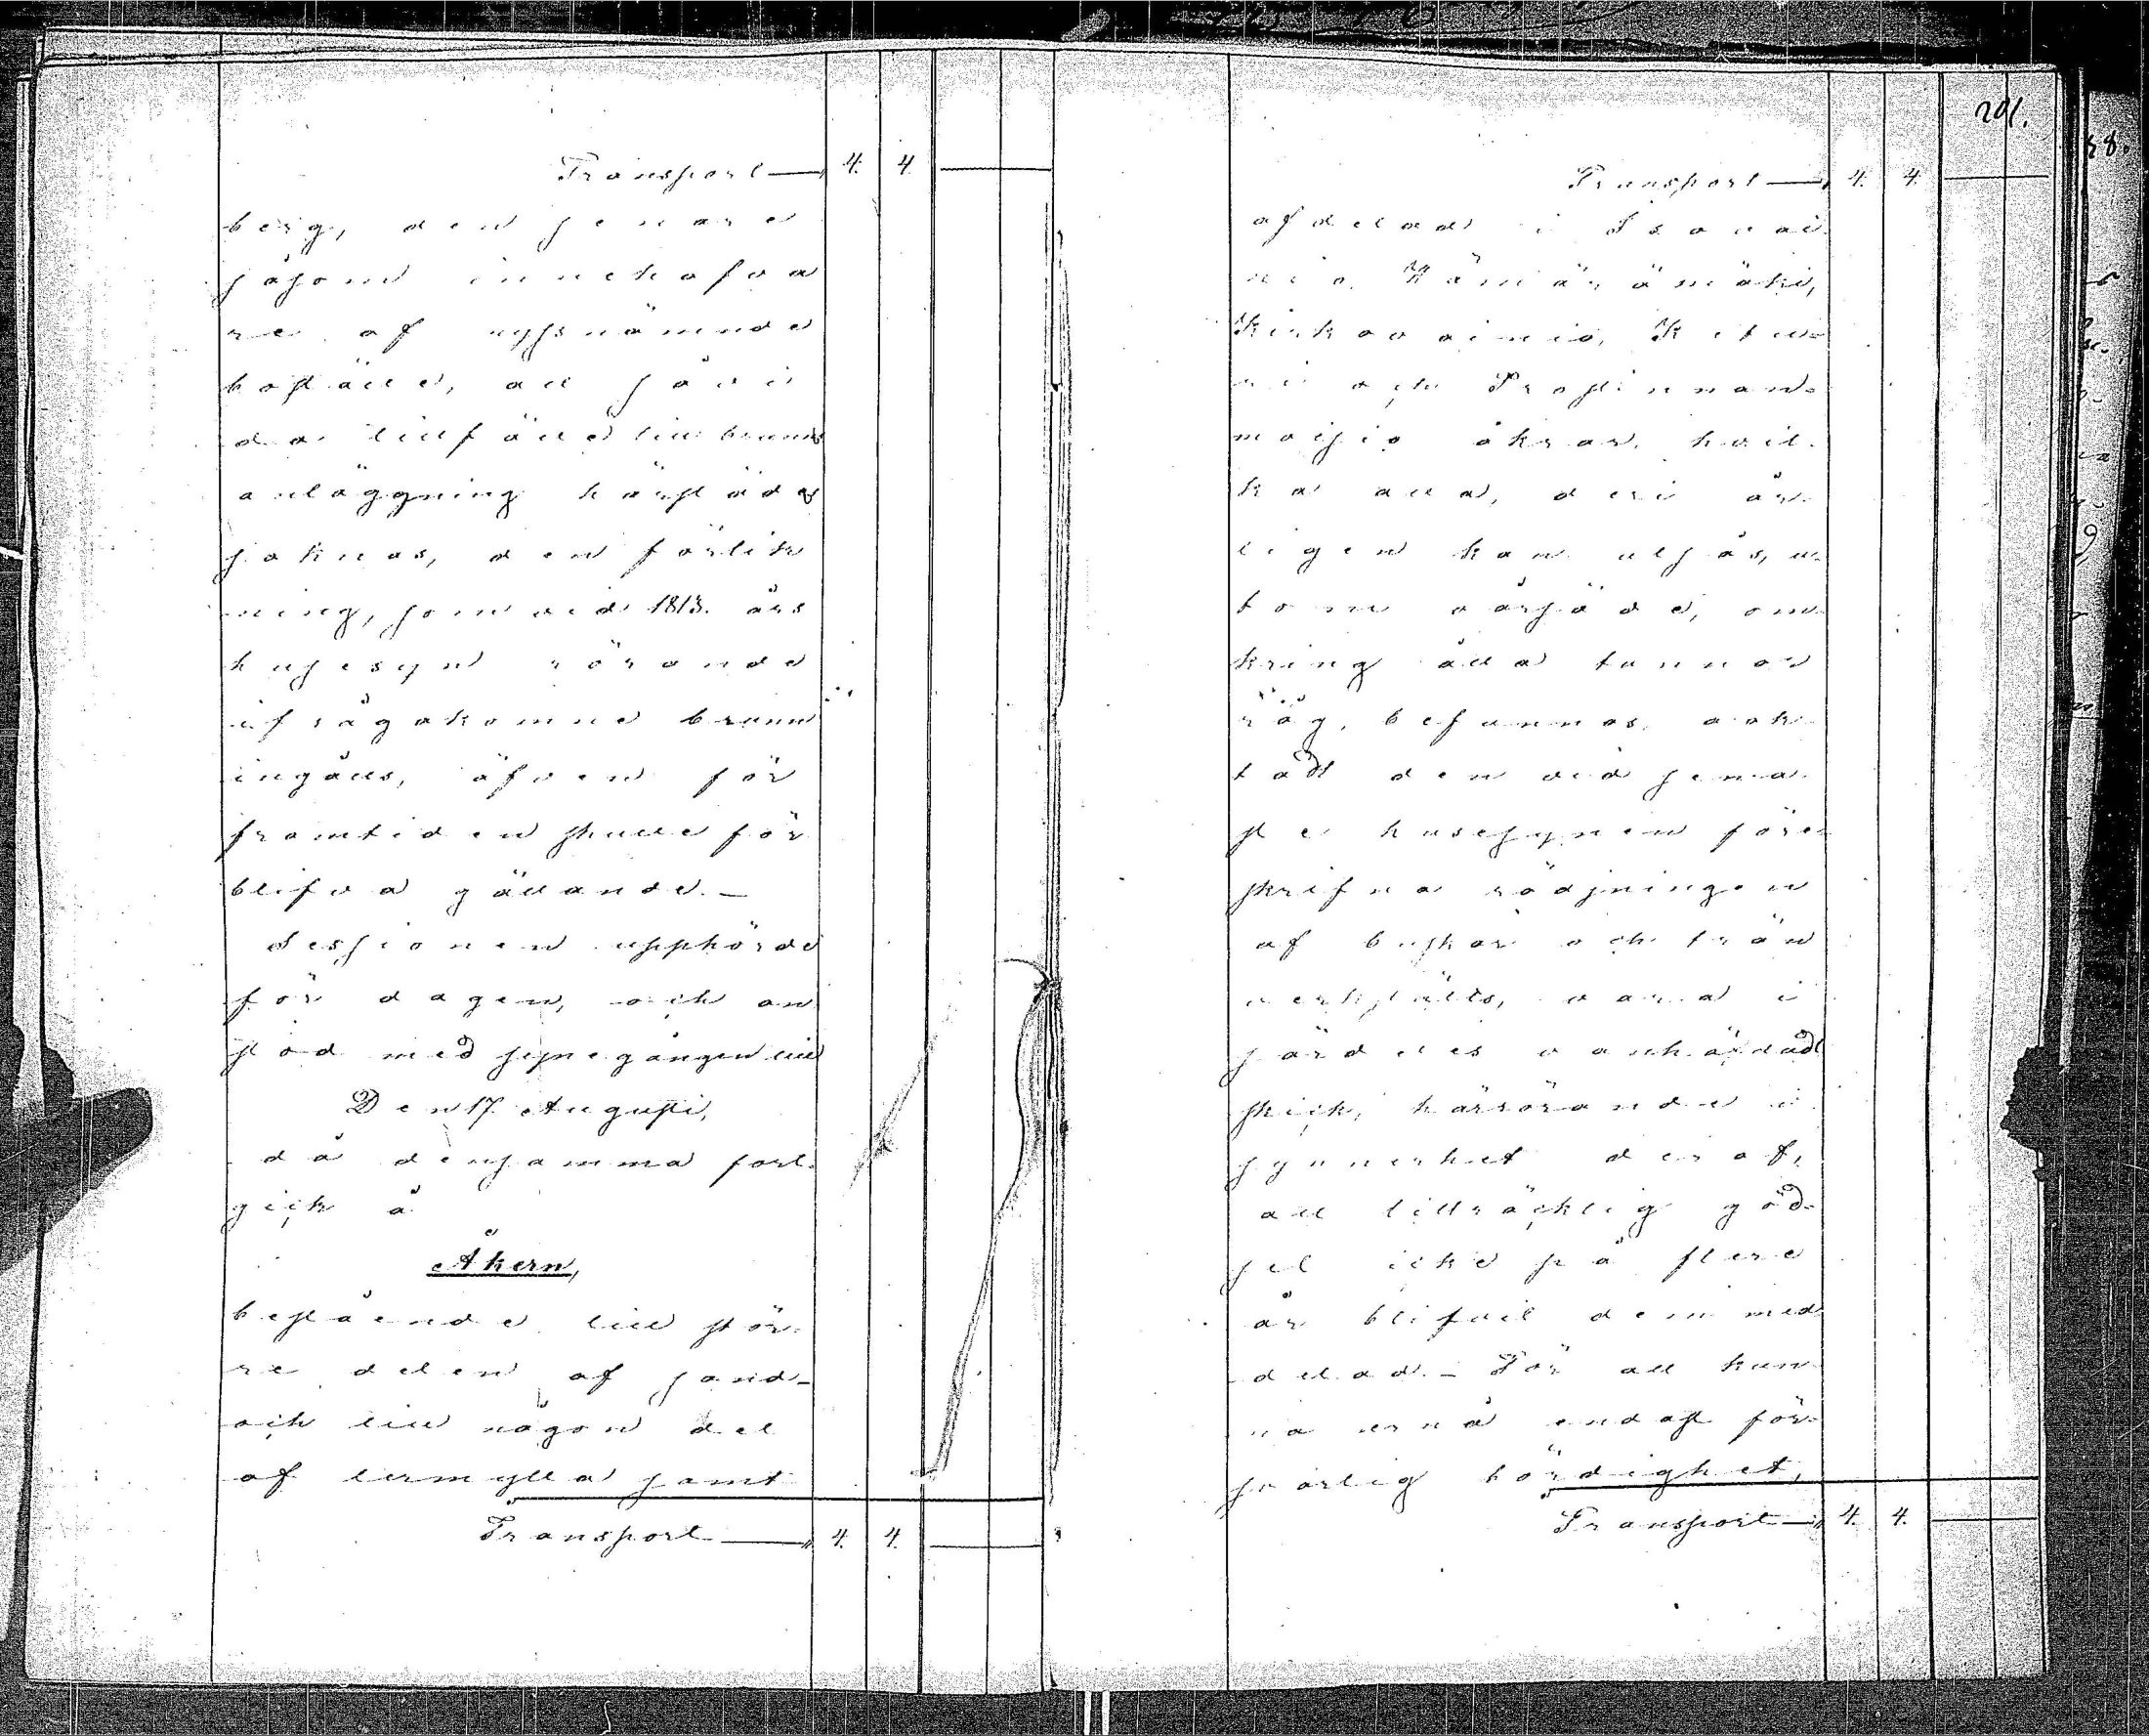 Transport — 4. 4.
berg, den senare
såsom innehafva
re af nyssnämnde
boställe, att såvi
da tillfälle till brunns
anläggning härstädes
saknas, den förlik
ning, som vid 1813. års
husesyn rörande
ifrågakomne brunn
ingåtts, äfven för
framtiden skulle för
blifva gällande. —
Sessionen upphörde
för dagen, och an
stod med synegången till
Den 17. Augusti,
då densamma fort-
gick å
Åkern,
bestående till stör-
re delen af sand-
och till någon del
af lermylla samt
Transport — 4. 4.
201.
Transport — 4. 4.
afdelad i Isovai
nio, Hämärämäki,
Kirkkovainio, Ketu-
ni och Prostinnan-
maisio åkrar, hvil-
ka alla, deri år-
ligen kan utsås, u-
tom vårsäde, om-
kring åtta tunnor
råg, befunnos, oak-
tadt den vid sena-
ste husesynen före-
skrifna rödjningen
af buskar och trän
verkstälts, vara i
särdeles vanhäfdadt
skick, härrörande i
synnerhet deraf,
att tillräcklig göd-
sel icke på flere
år blifvit dem med-
delad. — För att kun-
na ernå endast för-
svarlig bördighet,
Transport — 4. 4.